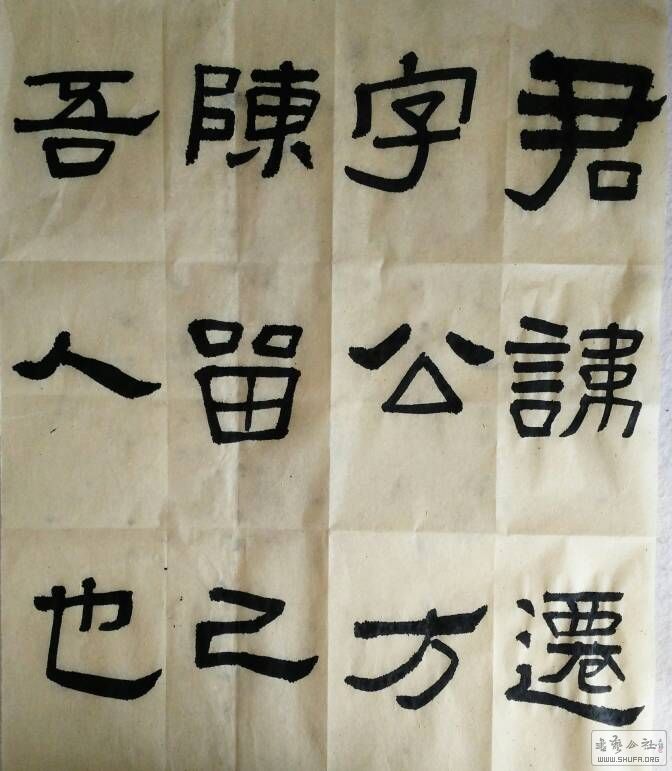 君諱遷
字公方
陳留己
吾人也
书艺公社
WWW.SHUFA.ORG